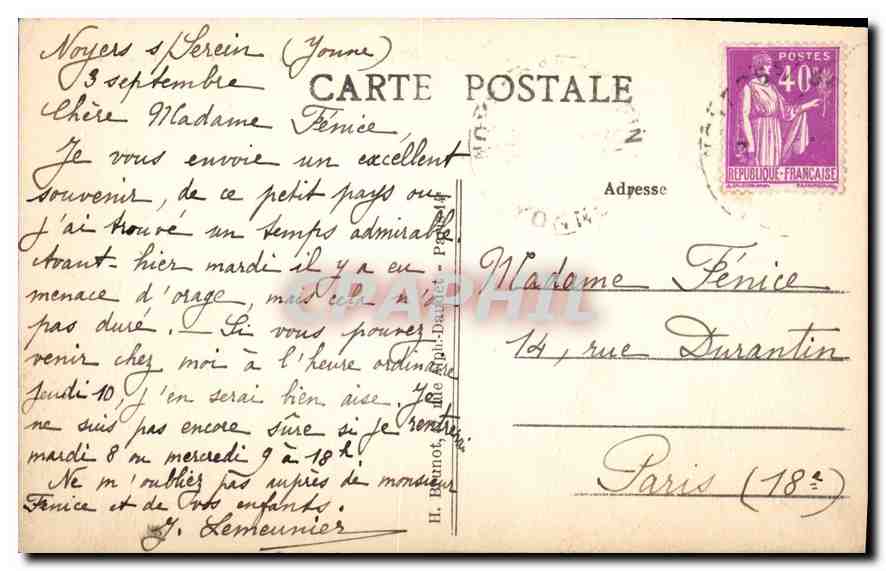 Noyers s/Serein (Yonne)
3 septembre
Chère Madame Fénice,
Je vous envoie un excellent
souvenir, de ce petit pays ou
j'ai trouvé un temps admirable.
Avant-hier mardi il y a eu
menace d'orage, mais cela n'a
pas duré. — Si vous pouvez
venir chez moi à l'heure ordinaire
jeudi 10, j'en serai bien aise. Je
ne suis pas encore sûre si je rentrerai
mardi 8 ou mercredi 9 à 18h
Ne m'oubliez pas auprès de monsieur
Fenice et de vos enfants.
J. Lemeunier
CARTE POSTALE
Adresse
H. Brunot, rue Alph.-Daudet - Paris-14
POSTES
40c
REPUBLIQUE-FRANÇAISE
YONNE
Madame Fénice
14, rue Durantin
Paris (18e)
CPAPHIL